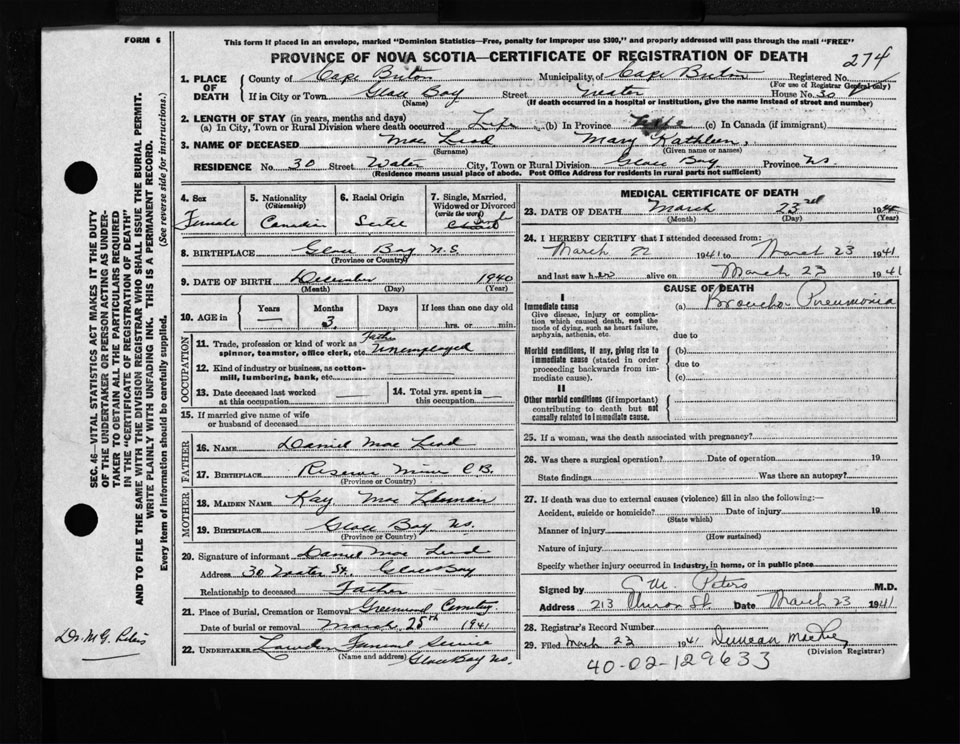 FORM 6
This form if placed in an envelope, marked "Dominion Statistics—Free, penalty for improper use $300," and properly addressed will pass through the mail "FREE"
PROVINCE OF NOVA SCOTIA—CERTIFICATE OF REGISTRATION OF DEATH
274
1. PLACE OF DEATH County of Cape Breton Municipality of Cape Breton Registered No.
(For use of Registrar General only)
If in City or Town Glace Bay Street Water House No. 30
(Name) (If death occurred in a hospital or institution, give the name instead of street and number)
2. LENGTH OF STAY (in years, months and days)
(a) In City, Town or Rural Division where death occurred Life (b) In Province (c) In Canada (if immigrant)
3. NAME OF DECEASED Mac Leod Mary Kathleen,
(Surname) (Given name or names)
RESIDENCE No. 30 Street Water City, Town or Rural Division Glace Bay Province N.S.
(Residence means usual place of abode. Post Office Address for residents in rural parts not sufficient)
4. Sex Female
5. Nationality (Citizenship) Canadian
6. Racial Origin
7. Single, Married, Widowed or Divorced (write the word)
8. BIRTHPLACE Glace Bay N.S.
(Province or Country)
9. DATE OF BIRTH December 1940
(Month) (Day) (Year)
10. AGE in Years — Months 3 Days If less than one day old hrs. or min.
OCCUPATION
11. Trade, profession or kind of work as spinner, teamster, office clerk, etc. Father Unemployed
12. Kind of industry or business, as cotton-mill, lumbering, bank, etc.
13. Date deceased last worked at this occupation —
14. Total yrs. spent in this occupation —
15. If married give name of wife or husband of deceased
FATHER
16. NAME Daniel Mac Leod
17. BIRTHPLACE Reserve Mines C.B.
(Province or Country)
MOTHER
18. MAIDEN NAME Kay Mac
19. BIRTHPLACE Glace Bay N.S.
(Province or Country)
20. Signature of informant Daniel Mac Leod
Address 30 Water St. Glace Bay
Relationship to deceased Father
21. Place of Burial, Cremation or Removal Greenwood Cemetery
Date of burial or removal March 25th 1941
22. UNDERTAKER Funeral Service
(Name and address) Glace Bay N.S.
MEDICAL CERTIFICATE OF DEATH
23. DATE OF DEATH March 23rd 194
(Month) (Day) (Year)
24. I HEREBY CERTIFY that I attended deceased from:
March 22 1941 to March 23 1941
and last saw her alive on March 23 1941
CAUSE OF DEATH
I
Immediate cause
Give disease, injury or complication which caused death, not the mode of dying, such as heart failure, asphyxia, asthenia, etc.
(a) Broncho Pneumonia
due to
Morbid conditions, if any, giving rise to immediate cause (stated in order proceeding backwards from immediate cause).
(b)
due to
(c)
II
Other morbid conditions (if important) contributing to death but not causally related to immediate cause.
25. If a woman, was the death associated with pregnancy?
26. Was there a surgical operation? Date of operation 19
State findings Was there an autopsy?
27. If death was due to external causes (violence) fill in also the following:—
Accident, suicide or homicide? Date of injury 19
(State which)
Manner of injury
(How sustained)
Nature of injury
Specify whether injury occurred in industry, in home, or in public place
Signed by C.M. Peters M.D.
Address 213 St. Date March 23 1941
28. Registrar's Record Number
29. Filed March 23 1941 Duncan
(Division Registrar)
40-02-129633
SEC. 46—VITAL STATISTICS ACT MAKES IT THE DUTY
OF THE UNDERTAKER OR PERSON ACTING AS UNDER-
TAKER TO OBTAIN ALL THE PARTICULARS REQUIRED
IN THE "CERTIFICATE OF REGISTRATION OF DEATH"
AND TO FILE THE SAME WITH THE DIVISION REGISTRAR WHO SHALL ISSUE THE BURIAL PERMIT.
WRITE PLAINLY WITH UNFADING INK. THIS IS A PERMANENT RECORD.
Every item of information should be carefully supplied. (See reverse side for instructions.)
Dr. M.G.